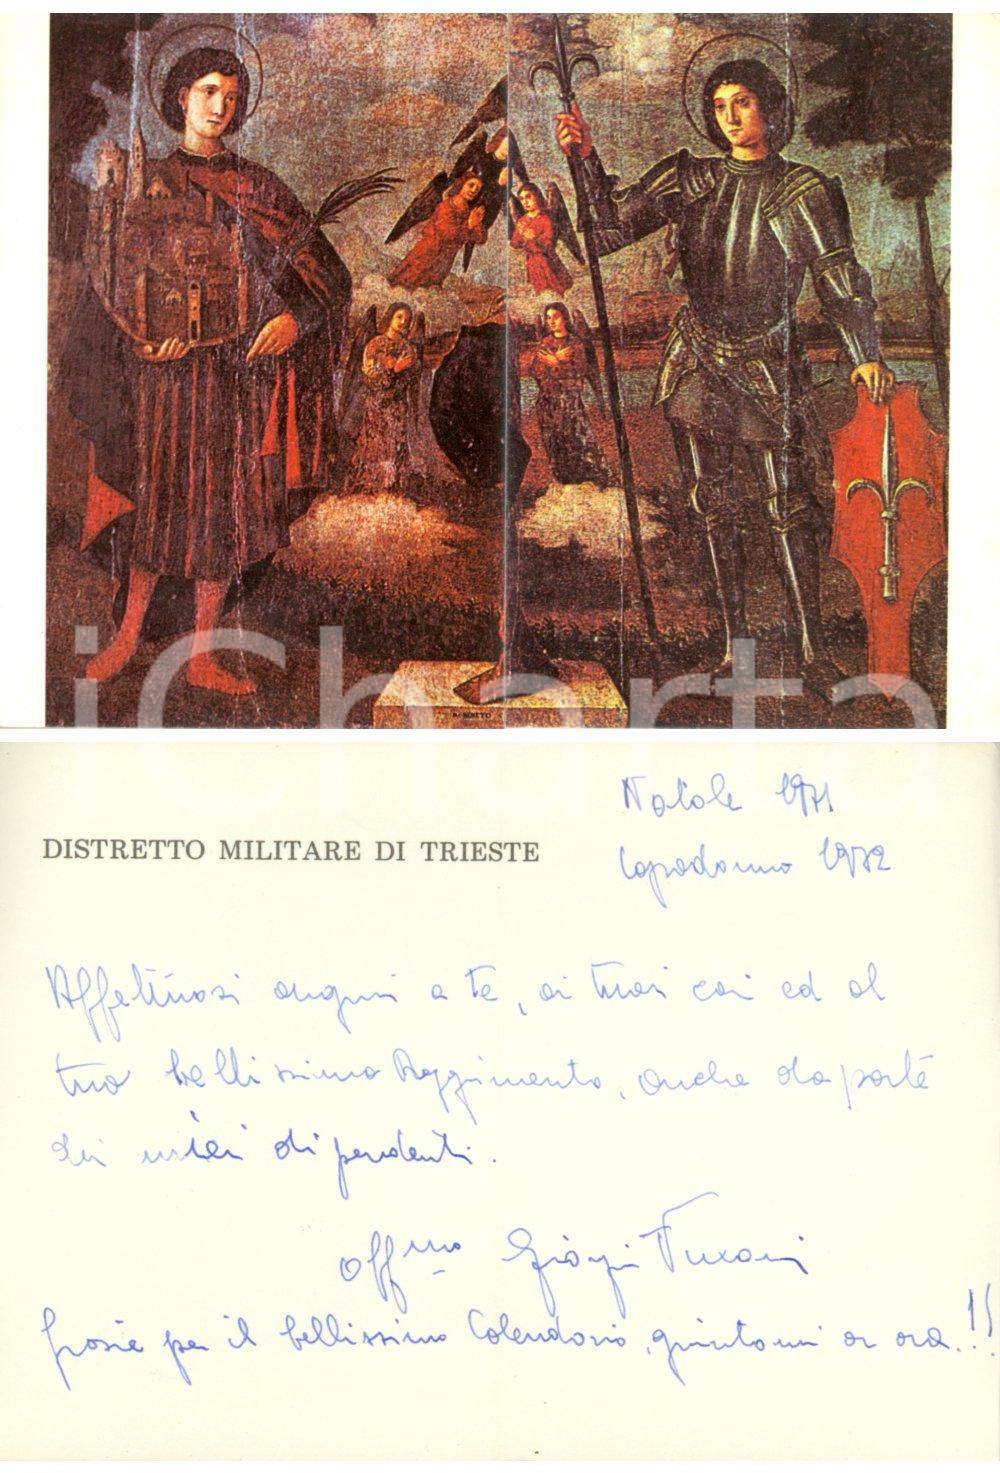 iCharta
DISTRETTO MILITARE DI TRIESTE
Natale 1971
Capodanno 1972
Affettuosi auguri a te, ai tuoi cari ed al
tuo bellissimo Reggimento, anche da parte
dei miei dipendenti.
aff.mo Giorgio
Grazie per il bellissimo Calendario, giuntomi or ora!!